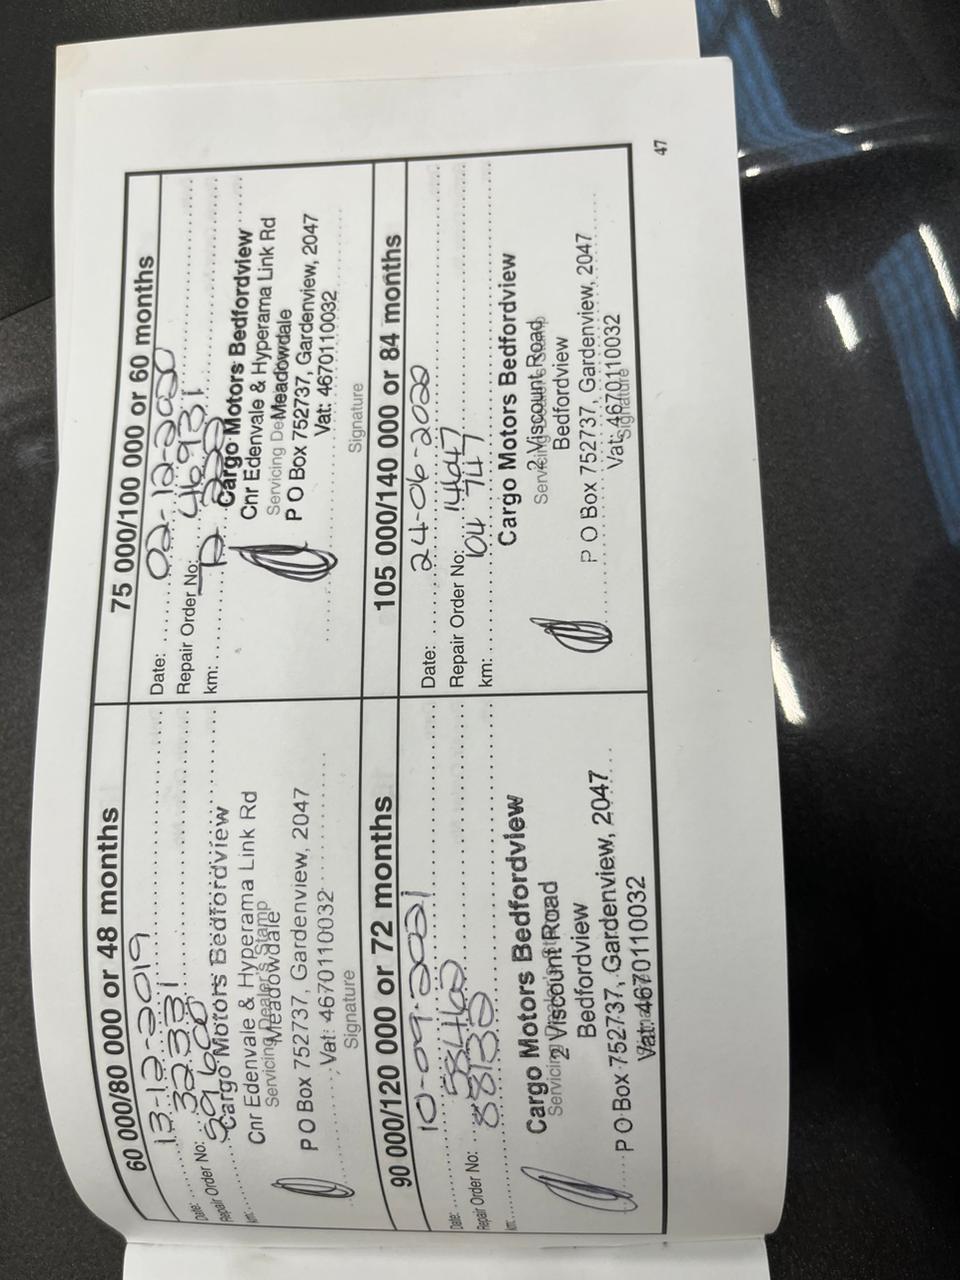 60 000/80 000 or 48 months
Date: 13-12-2019
Repair Order No: 32331
km: 59600
Cargo Motors Bedfordview
Cnr Edenvale & Hyperama Link Rd
Servicing Dealer's Stamp
Meadowdale
P O Box 752737, Gardenview, 2047
Vat: 4670110032
Signature
75 000/100 000 or 60 months
Date: 02-12-2020
Repair Order No: 46931
km:
Cargo Motors Bedfordview
Cnr Edenvale & Hyperama Link Rd
Servicing De
Meadowdale
P O Box 752737, Gardenview, 2047
Vat: 4670110032
Signature
90 000/120 000 or 72 months
Date: 10-09-2021
Repair Order No: 58462
km: 88132
Cargo Motors Bedfordview
Servicing
2 Viscount Road
Bedfordview
P O Box 752737, Gardenview, 2047
Vat: 4670110032
105 000/140 000 or 84 months
Date: 24-06-2022
Repair Order No: 14647
km: 104 747
Cargo Motors Bedfordview
Servicing
2 Viscount Road
Bedfordview
P O Box 752737, Gardenview, 2047
Vat: 4670110032
Signature
47